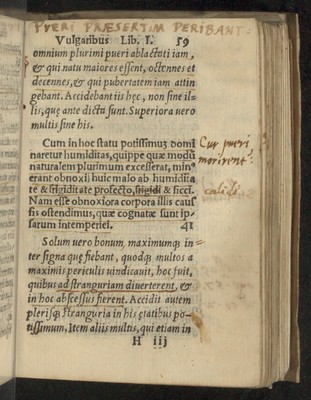 PVERI PRAESERTIM PERIBANT:
Vulgaribus Lib. I. 59
omnium plurimi pueri ablactati iam,
& qui natu maiores essent, octennes et
decennes, & qui pubertatem iam attin
gebant. Accidebant iis hęc, non sine il-
lis, quę ante dicta sunt. Superiora vero
multis sine his.
Cum in hoc statu potissimum domi
naretur humiditas, quippe quæ modũ
naturalem plurimum excesserat, min'
erant obnoxii huic malo ab humidita
te & frigiditate profecto, frigidi & sicci.
Nam esse obnoxiora corpora illis caus
sis ostendimus, quæ cognatæ sunt ip-
sarum intemperiei. 41
Cur pueri
morirent'.
calidi.
Solum uero bonum, maximumq; in
ter signa quę fiebant, quodq; multos a
maximis periculis uindicauit, hoc fuit,
quibus ad stranguriam diuerterent, &
in hoc abscessus fierent. Accidit autem
plerisq; stranguria in his ętatibus po-
tissimum, Item aliis multis, qui etiam in
H iij